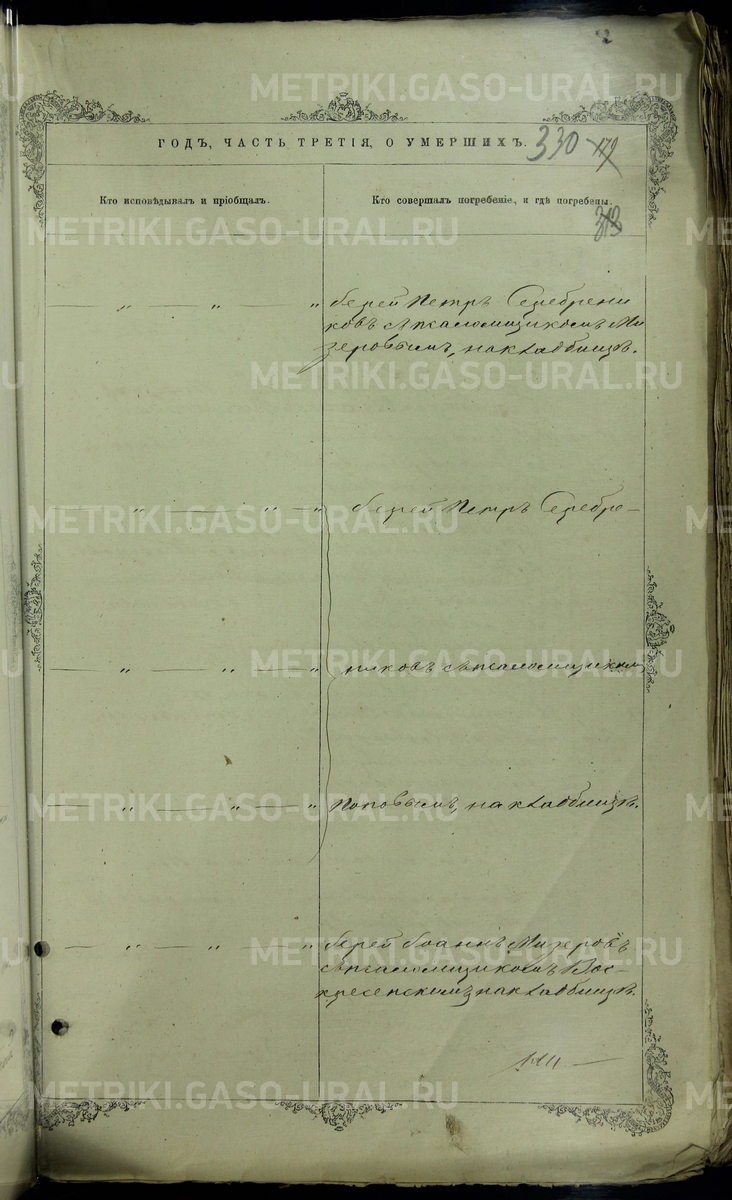 METRIKI.GASO-URAL.RU
ГОДЪ, ЧАСТЬ ТРЕТІЯ, О УМЕРШИХЪ.
330
Кто исповѣдывалъ и пріобщалъ.
Кто совершалъ погребеніе, и гдѣ погребены.
313
— „ — „ — „
Іерей Петръ Серебрени
ковъ съ псаломщикомъ Ми
зеровымъ, на кладбищѣ.
— „ — „ — „
Іерей Петръ Серебре-
— „ — „ — „
никовъ съ псаломщикомъ
— „ — „ — „
Поповымъ, на кладбищѣ.
— „ — „ — „
Іерей Іоаннъ Мизеровъ
съ псаломщикомъ Вос-
кресенскимъ на кладбищѣ.